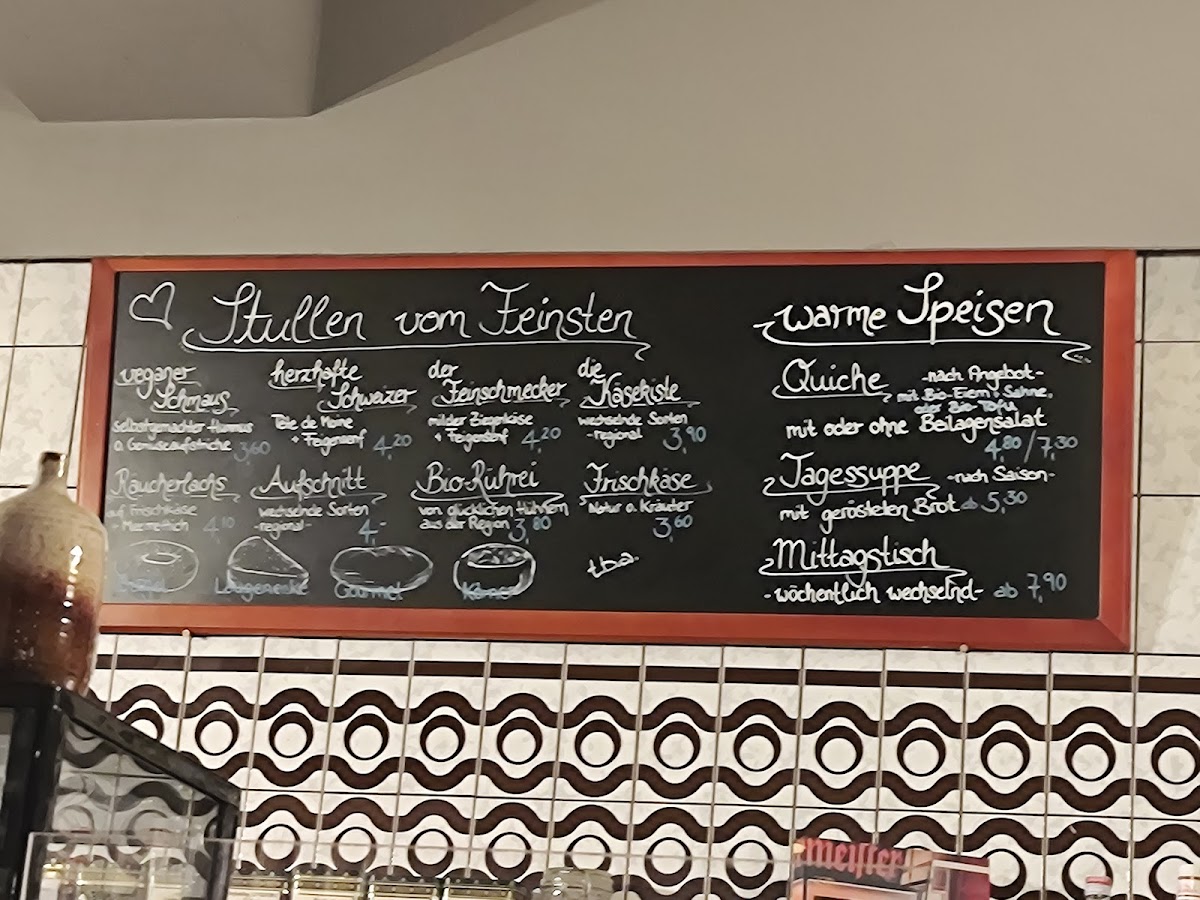 Stullen vom Feinsten
veganer
Schmaus
selbstgemachter Hummus
o. Gemüseaufstriche 3,60
herzhafte
Schweizer
Tête de Moine
+ Feigensenf 4,20
der
Feinschmecker
milder Ziegenkäse
+ Feigensenf 4,20
die
Käsekiste
wechselnde Sorten
-regional- 3,90
Räucherlachs
auf Frischkäse
+ Meerrettich 4,10
Aufschnitt
wechselnde Sorten
-regional- 4,-
Bio-Rührei
von glücklichen Hühnern
aus der Region 3,80
Frischkäse
Natur o. Kräuter
3,60
Bagel
Laugenecke
Gourmet
Körner
tba.
warme Speisen
Quiche -nach Angebot-
mit Bio-Eiern + Sahne,
oder Bio-Tofu
mit oder ohne Beilagensalat
4,80/7,30
Tagessuppe -nach Saison-
mit gerösteten Brot ab 5,30
Mittagstisch
-wöchentlich wechselnd- ab 7,90
meister